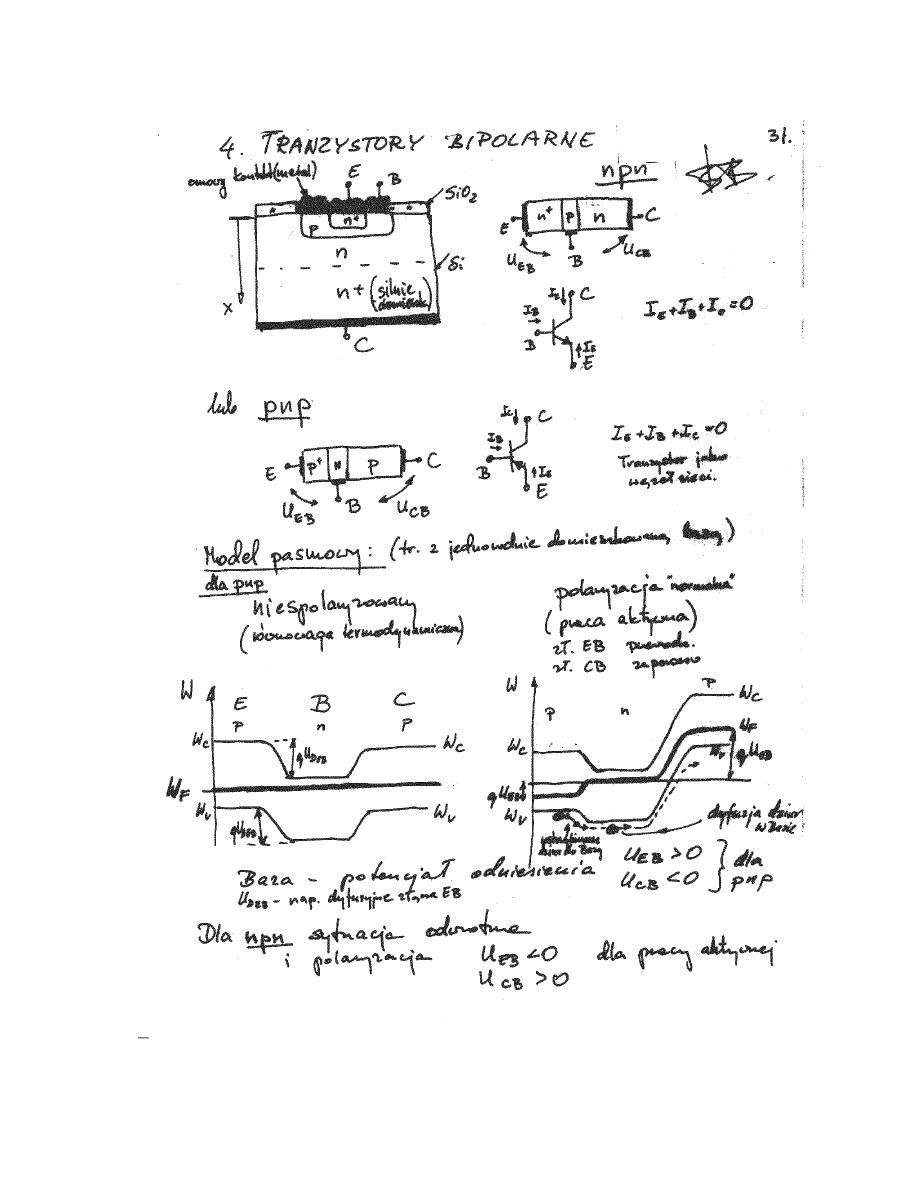 4. TRANZYSTORY BIPOLARNE
31.
omowy kontakt (metal)
E
B
SiO₂
p
n+
n
Si
n+ (silnie
domieszk.)
x
C
npn
E
n+ p n
C
U_EB
B
U_CB
I_C
C
I_B
B
I_E
E
I_E+I_B+I_C=0
lub pnp
E
p+ n p
C
U_EB
B
U_CB
I_C
C
I_B
B
I_E
E
I_E+I_B+I_C=0
Tranzystor jako
węzeł sieci.
Model pasmowy: (tr. z jednorodnie domieszkowaną bazą)
dla pnp
niespolaryzowany
(równowaga termodynamiczna)
polaryzacja "normalna"
(praca aktywna)
zł. EB przewodz.
zł. CB zaporowo
W
E B C
p n p
W_C
qU_DEB
W_C
W_F
W_V
qU_DEB
W_V
W
p n p
W_C
W_C
W_F
W_V
qU_EB
W_V
dyfuzja dziur
w Bazie
wstrzykiwanie
dziur do Bazy
Baza – potencjał odniesienia
U_DEB – nap. dyfuzyjne złącza EB
U_EB > 0
U_CB < 0
dla
pnp
Dla npn sytuacja odwrotna
i polaryzacja U_EB < 0 dla pracy aktywnej
U_CB > 0